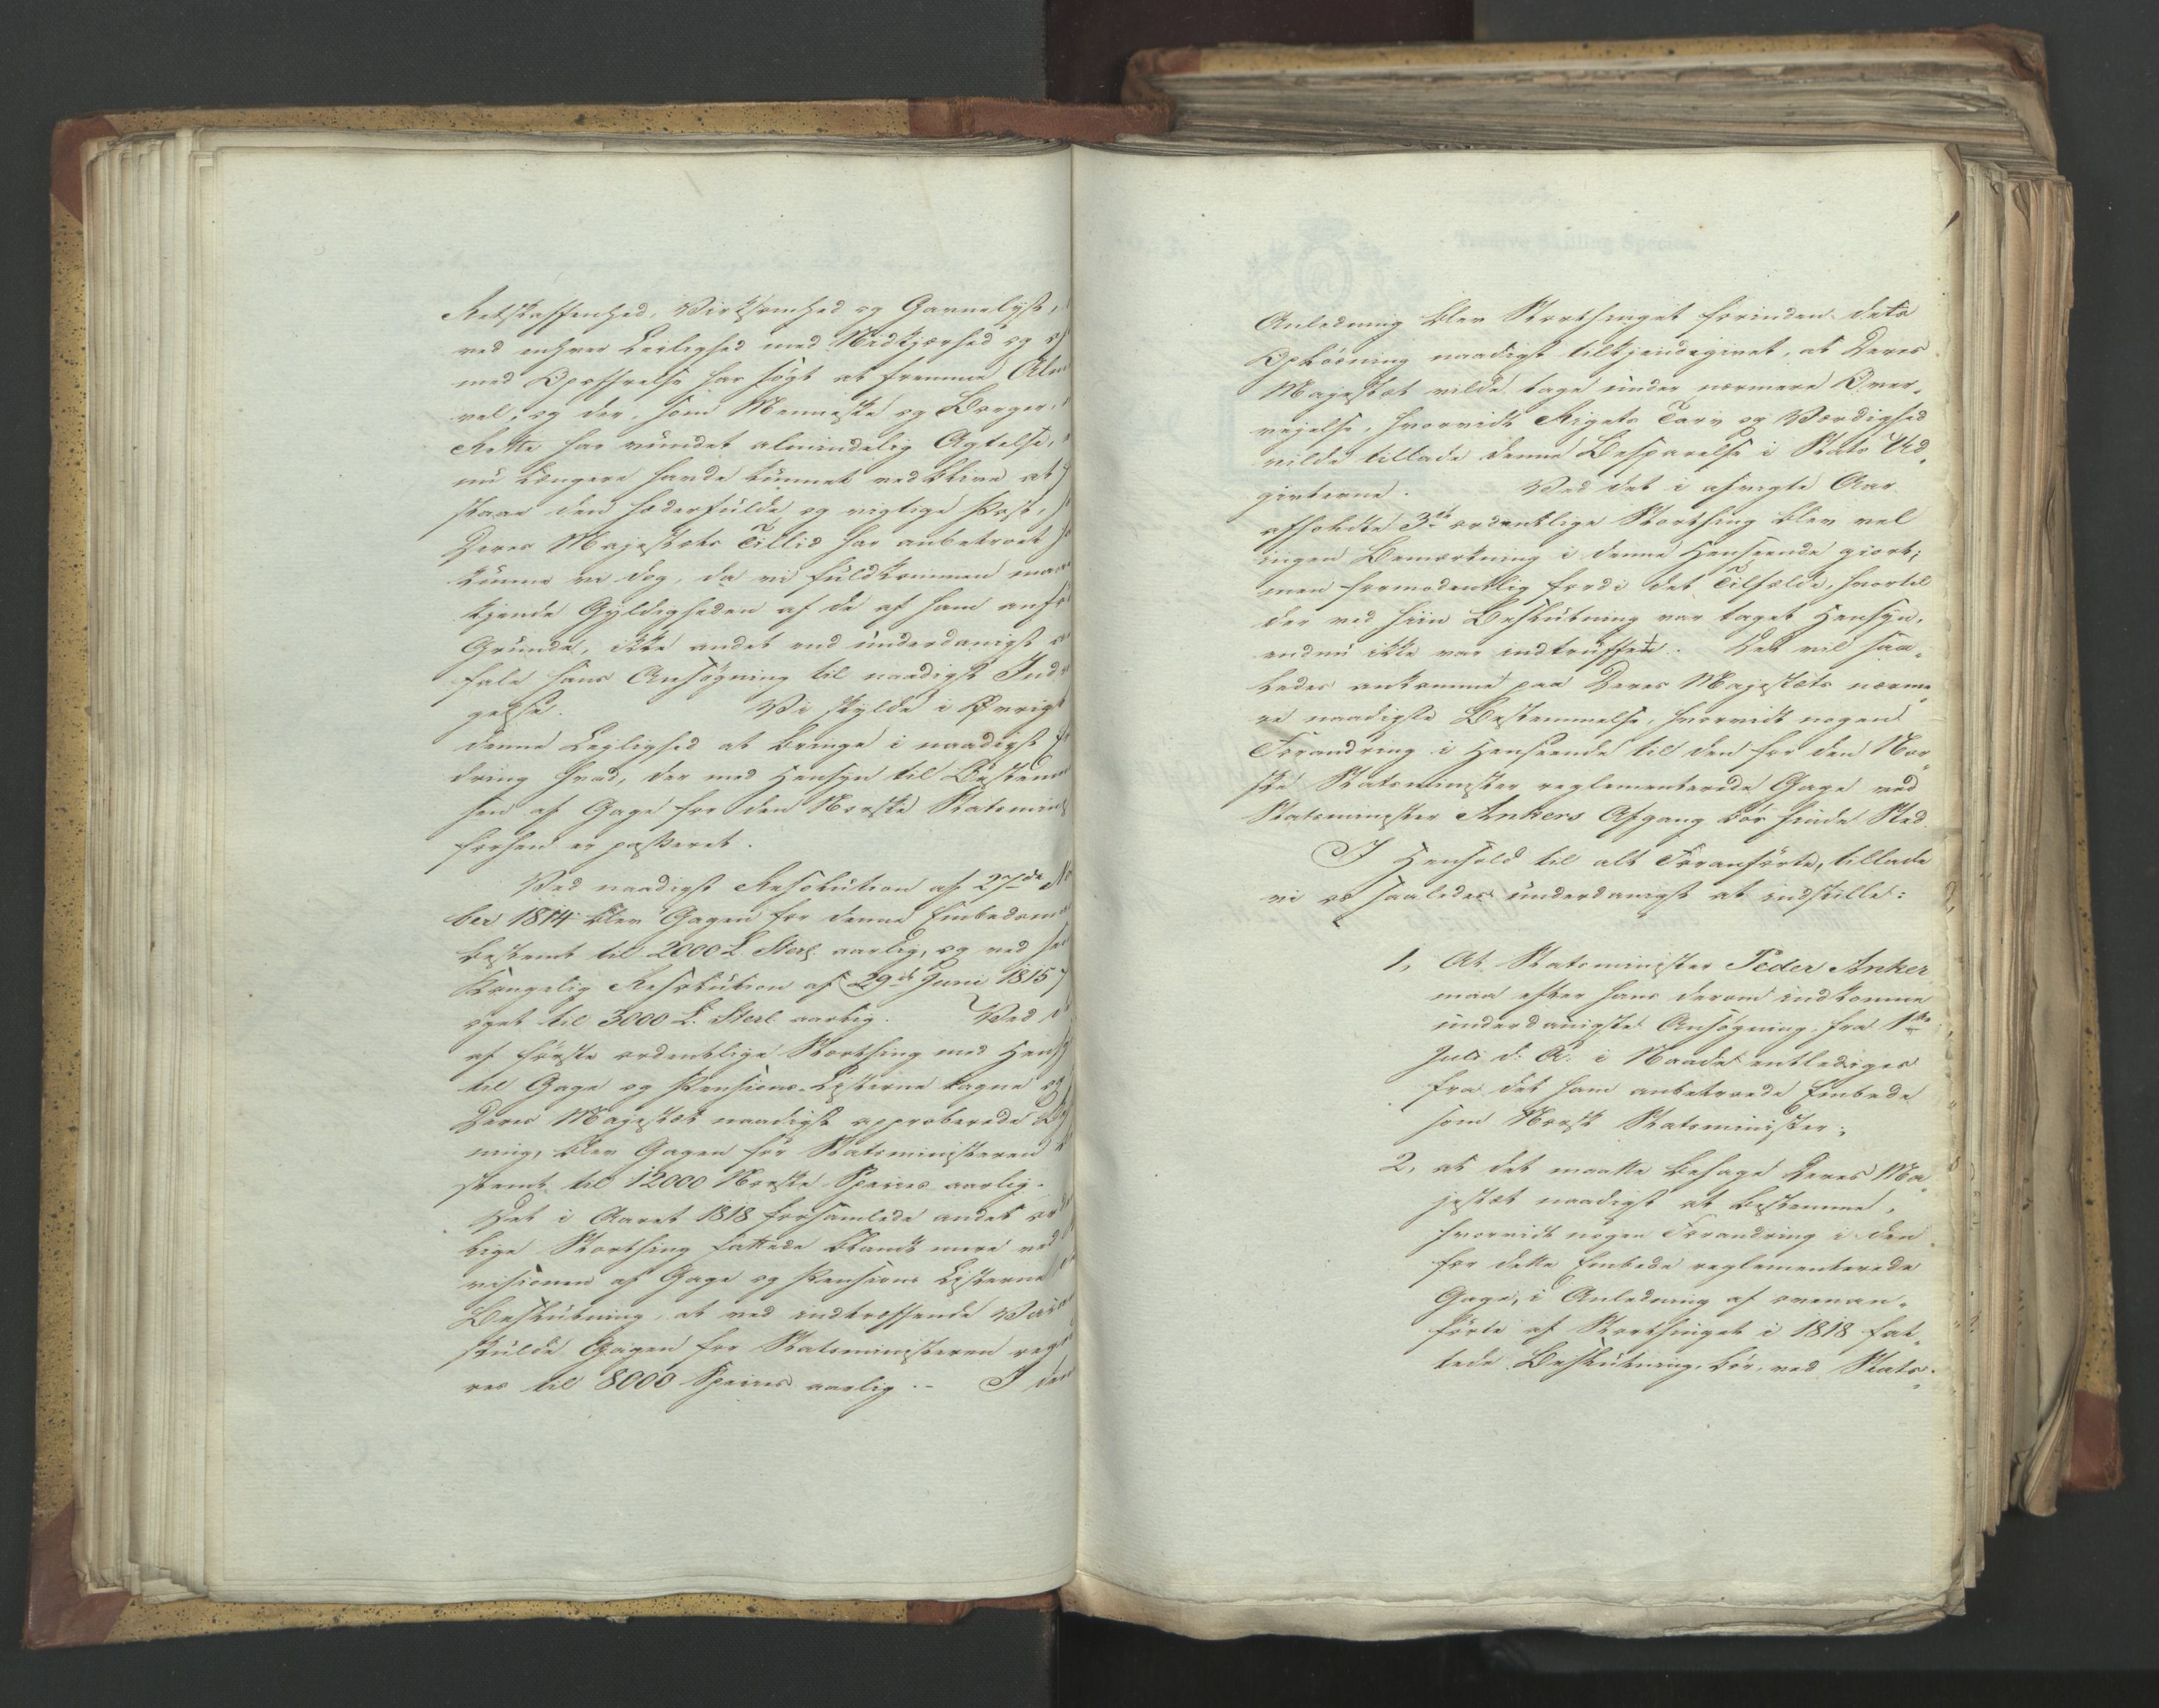 Retskaffenhed, Virksomhed og Gavnelyst,
ved enhver Leilighed med Nidkjærhed og
med Opoffrelse har søgt at fremme Alm
vel, og der, som Menneske og Borger,
Rette har vundet almindelig Agtelse,
nu længere havde kunnet vedblive at
staae den hæderfulde og vigtige Post,
Deres Majestæts Tillid har anbetroet
kunne vi dog, da vi fuldkommen maae
kjende Gyldigheden af de af ham anfø
Grunde, ikke andet end underdanigst
fale hans Ansøgning til naadigst Ind
gelse. Vi skylde i Øvrigt
denne Leylighed at bringe i naadigst
dring hvad, der med Hensyn til Bestemm
sen af Gage for den Norske Statsminis
forhen er passeret.
Ved naadigst Resolution af 27de No
ber 1814 blev Gagen for denne Embedsm
bestemt til 2000 L. Sterl. aarlig, og ved
Kongelig Resolution af 29de Juni 1815
øget til 3000 L. Sterl. aarlig. Ved
af første ordentlige Storthing med Hens
til Gage og Pensions-Listerne tagne
Deres Majestæt naadigst approberede Be
ning, blev Gagen for Statsministeren
stemt til 12000 Norske Species aarlig.
Det i Aaret 1818 forsamlede andet or
lige Storthing fattede blandt mere ved
visionen af Gage og Pensions Listerne
Beslutning, at ved indtræffende Vaca
skulde Gagen for Statsministeren reg
res til 8000 Species aarlig. - I den
Anledning blev Storthinget forinden dets
Opløsning naadigst tilkjendegivet, at Deres
Majestæt vilde tage under nærmere Over„
veielse, hvorvidt Rigets Tarv og Værdighed
vilde tillade denne Besparelse i Stats Ud„
givterne. Ved det i afvigte Aar
afholdte 3die ordentlige Storthing blev vel
ingen Bemærkning i denne Henseende giort;
men formodentlig fordi det Tilfælde, hvortil
der ved hiin Beslutning var taget Hensyn,
endnu ikke var indtruffet. Det vil saa„
ledes ankomme paa Deres Majestæts nærme„
re naadigste Bestemmelse, hvorvidt nogen
Forandring i Henseende til den for den Nor„
ske Statsminister reglementerede Gage ved
Statsminister Ankers Afgang bör finde Sted.
I Henhold til alt Foranførte, tillade
vi os saaledes underdanigst at indstille:
1, At Statsminister Peder Anker
maa efter hans derom indkomne
underdanigste Ansøgning fra 1ste
Juli d: A: i Naade entlediges
fra det ham anbetroede Embede
som Norsk Statsminister;
2, at det maatte behage Deres Ma„
jestæt naadigst at bestemme,
hvorvidt nogen Forandring i den
for dette Embede reglementerede
Gage, i Anledning af ovenan„
førte af Storthinget i 1818 fat„
tede Beslutning, bör, ved Stats„